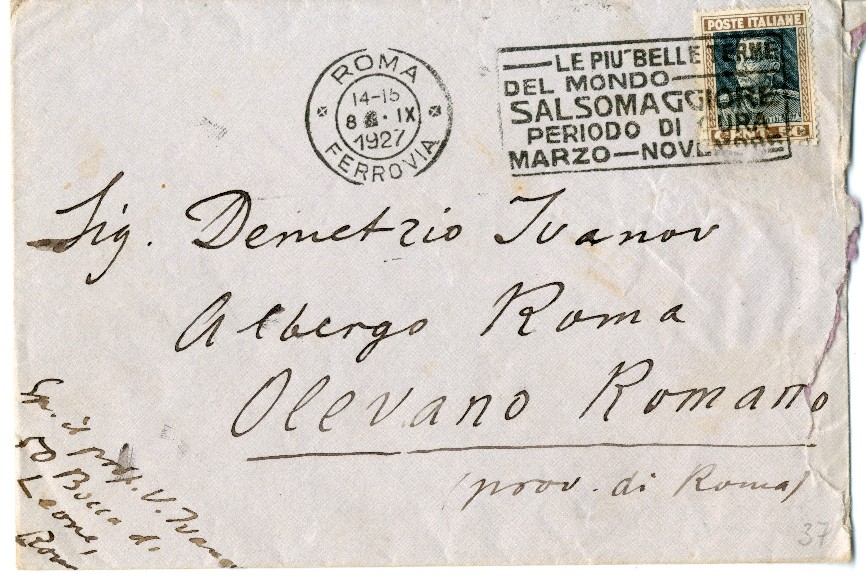 POSTE ITALIANE
ROMA
14-15
8 · IX
1927
FERROVIA
LE PIU' BELLE TERME
DEL MONDO
SALSOMAGGIORE
PERIODO DI CURA
MARZO — NOVEMBRE
Sig. Demetrio Ivanov
Albergo Roma
Olevano Romano
(prov. di Roma)
prof. V. Ivanov
50 Bocca di
Leone,
Rom
37